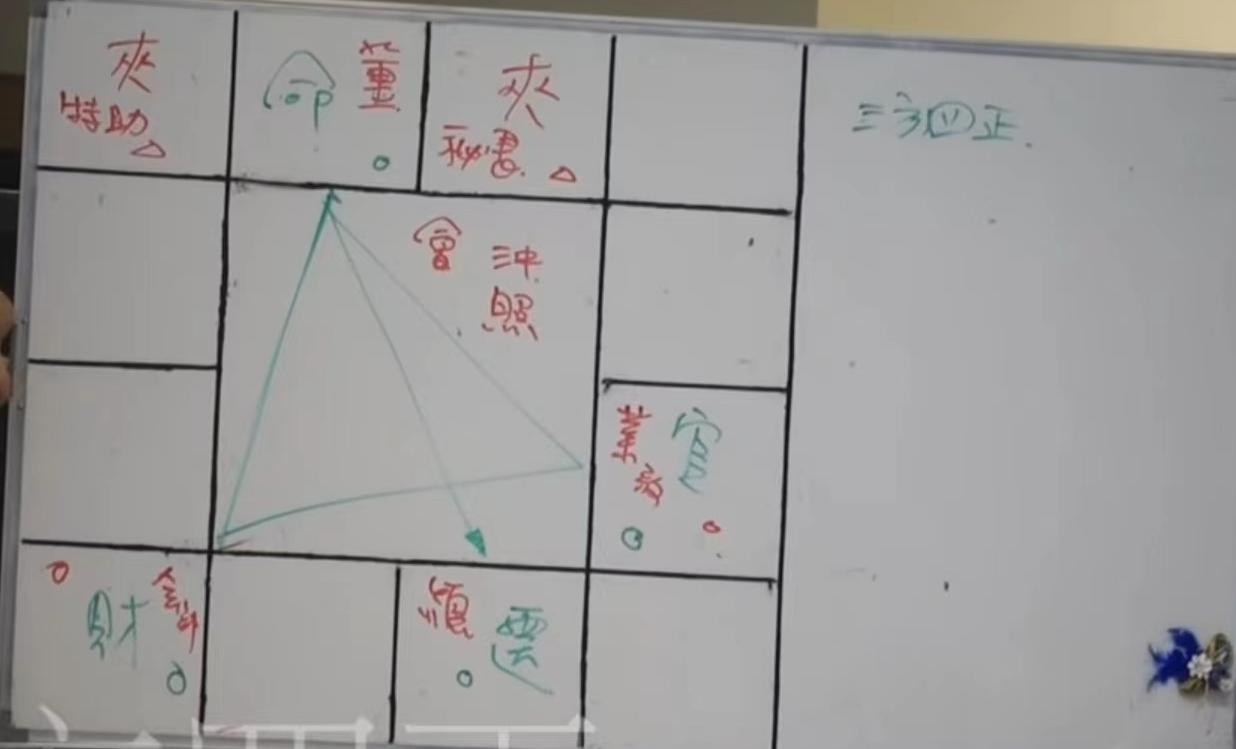 夾
特助
命 董
夾
秘書
三方四正
會 沖
照
業 官
務
財 會計
總 遷